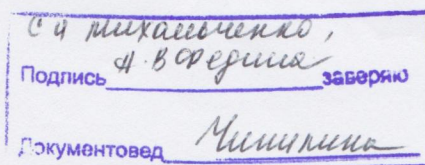 С И Михальченко,
А. В Федина
Подпись заверяю
Документовед